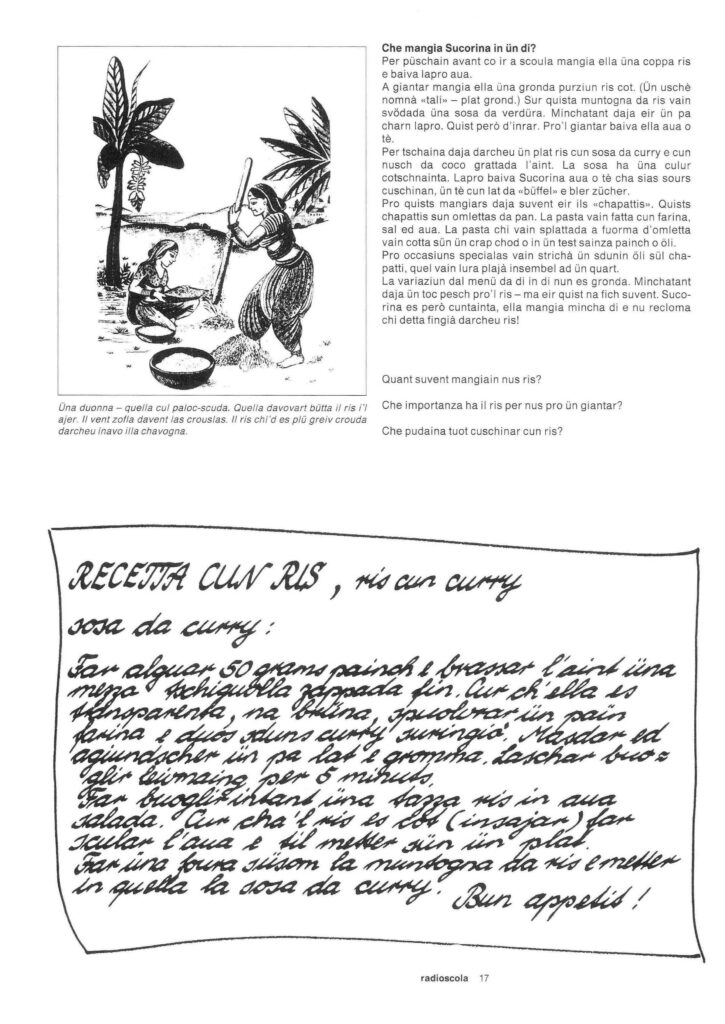 Che mangia Sucorina in ün di?
Per püschain avant co ir a scoula mangia ella üna coppa ris
e baiva lapro aua.
A giantar mangia ella üna gronda purziun ris cot. (Ün uschè
nomnà «tali» – plat grond.) Sur quista muntogna da ris vain
svödada üna sosa da verdüra. Minchatant daja eir ün pa
charn lapro. Quist però d'inrar. Pro'l giantar baiva ella aua o
tè.
Per tschaina daja darcheu ün plat ris cun sosa da curry e cun
nusch da coco grattada l'aint. La sosa ha üna culur
cotschnainta. Lapro baiva Sucorina aua o tè cha sias sours
cuschinan, ün tè cun lat da «büffel» e bler zücher.
Pro quists mangiars daja suvent eir ils «chapattis». Quists
chapattis sun omlettas da pan. La pasta vain fatta cun farina,
sal ed aua. La pasta chi vain splattada a fuorma d'omletta
vain cotta sün ün crap chod o in ün test sainza painch o öli.
Pro occasiuns specialas vain strichà ün sdunin öli sül cha-
patti, quel vain lura plajà insembel ad ün quart.
La variaziun dal menü da di in di nun es gronda. Minchatant
daja ün toc pesch pro'l ris – ma eir quist na fich suvent. Suco-
rina es però cuntainta, ella mangia mincha di e nu recloma
chi detta fingià darcheu ris!
Quant suvent mangiain nus ris?
Che importanza ha il ris per nus pro ün giantar?
Che pudaina tuot cuschinar cun ris?
Üna duonna – quella cul paloc-scuda. Quella davovart bütta il ris i'l
ajer. Il vent zofla davent las crouslas. Il ris chi'd es plü greiv crouda
darcheu inavo illa chavogna.
RECETTA CUN RIS, ris cun curry
sosa da curry:
Far alguar 50 grams painch e brassar l'aint üna
mezza tschiguolla zappada fin. Cur ch'ella es
transparenta, na brüna, spuolvrar ün pain
farina e duos sduns curry suringiò. Masdar ed
agiundscher ün pa lat e gromma. Laschar buo=
glir leivmaing per 5 minuts.
Far buoglir intant üna tazza ris in aua
salada. Cur cha'l ris es cot (insajar) far
scular l'aua e til metter sün ün plat.
Far üna foura süsom la muntogna da ris e metter
in quella la sosa da curry.
Bun appetit!
radioscola 17